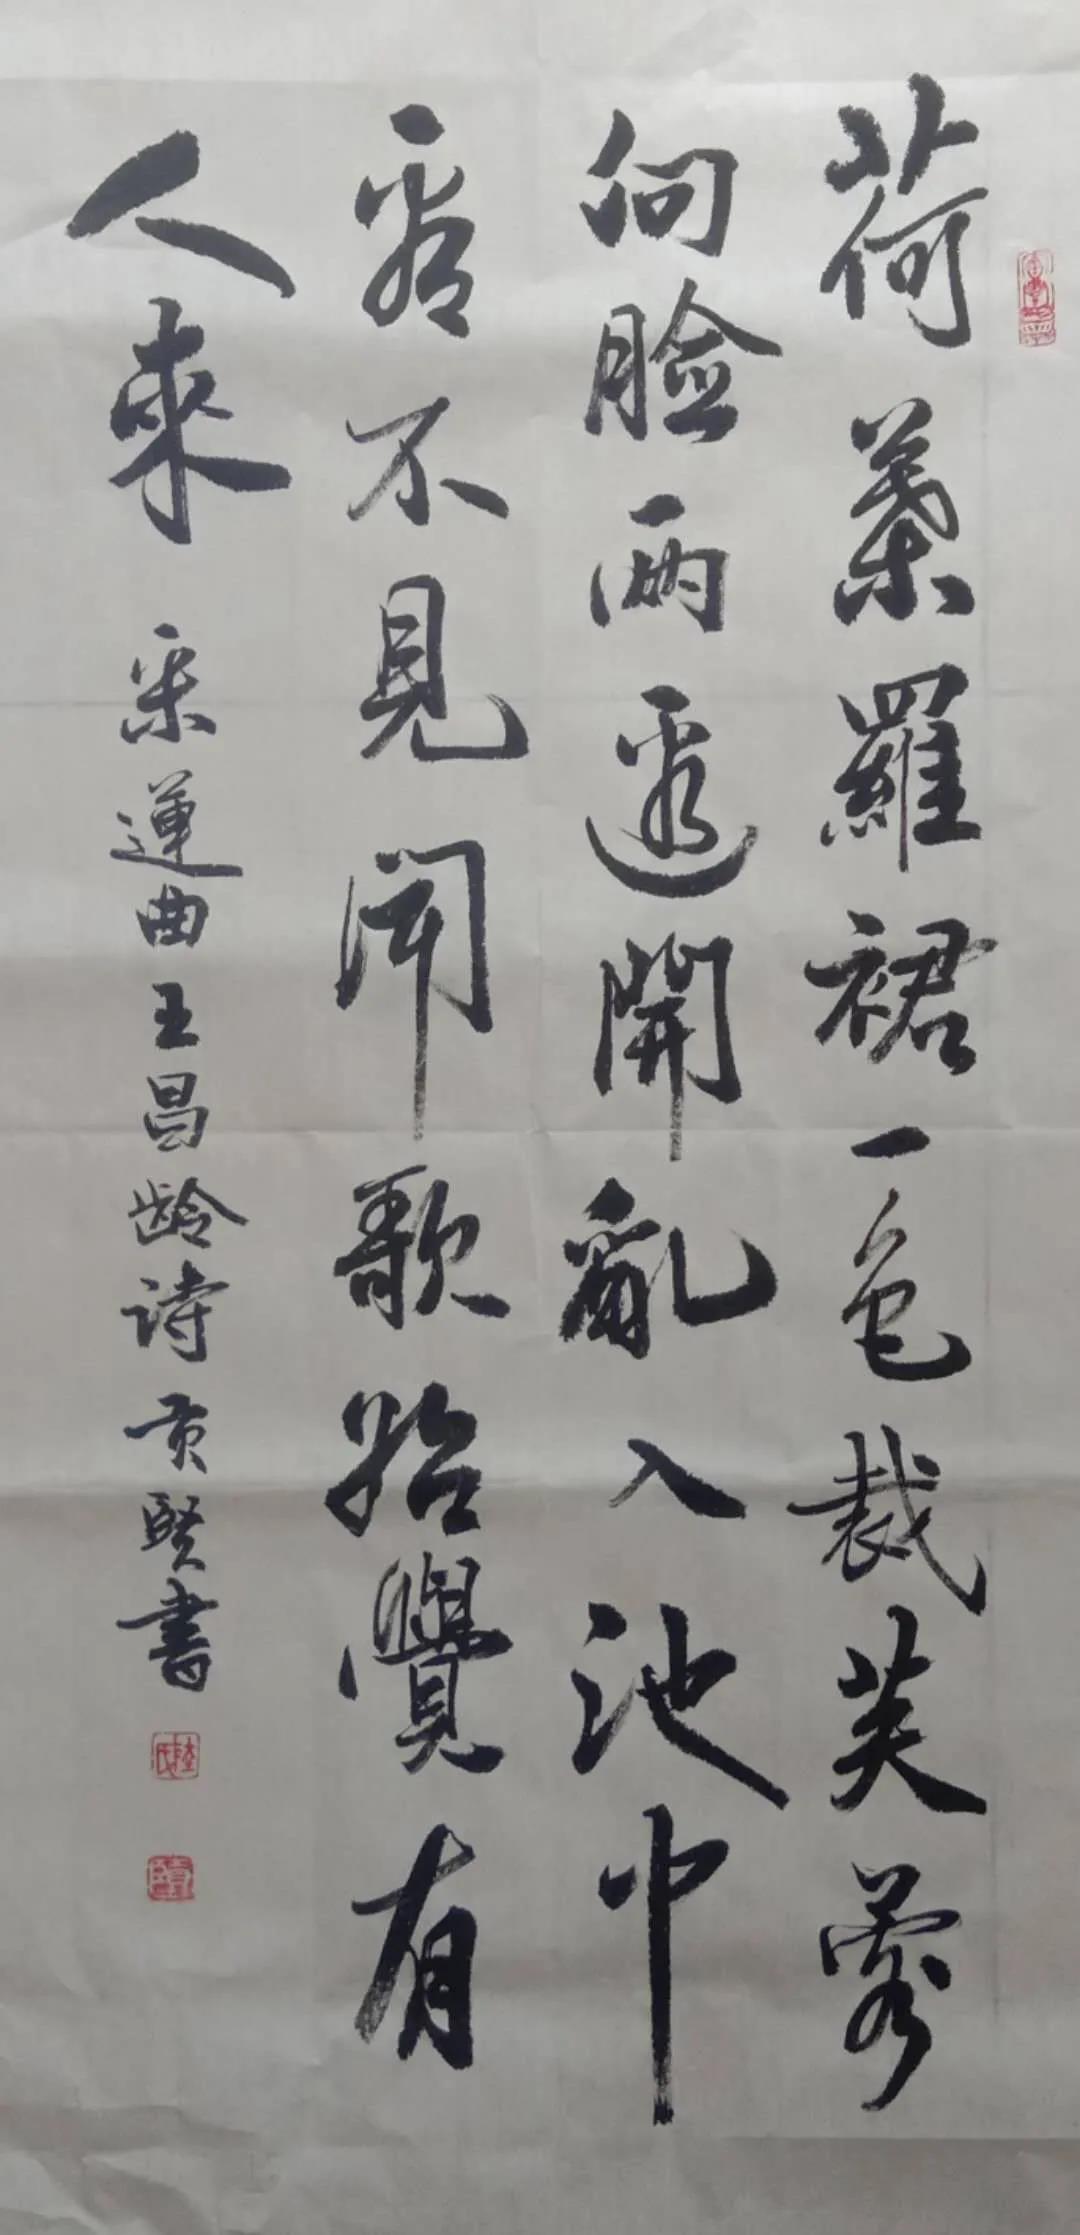 荷葉羅裙一色裁芙蓉
向臉兩邊開亂入池中
看不見聞歌始覺有
人來 采蓮曲王昌龄诗 賢書